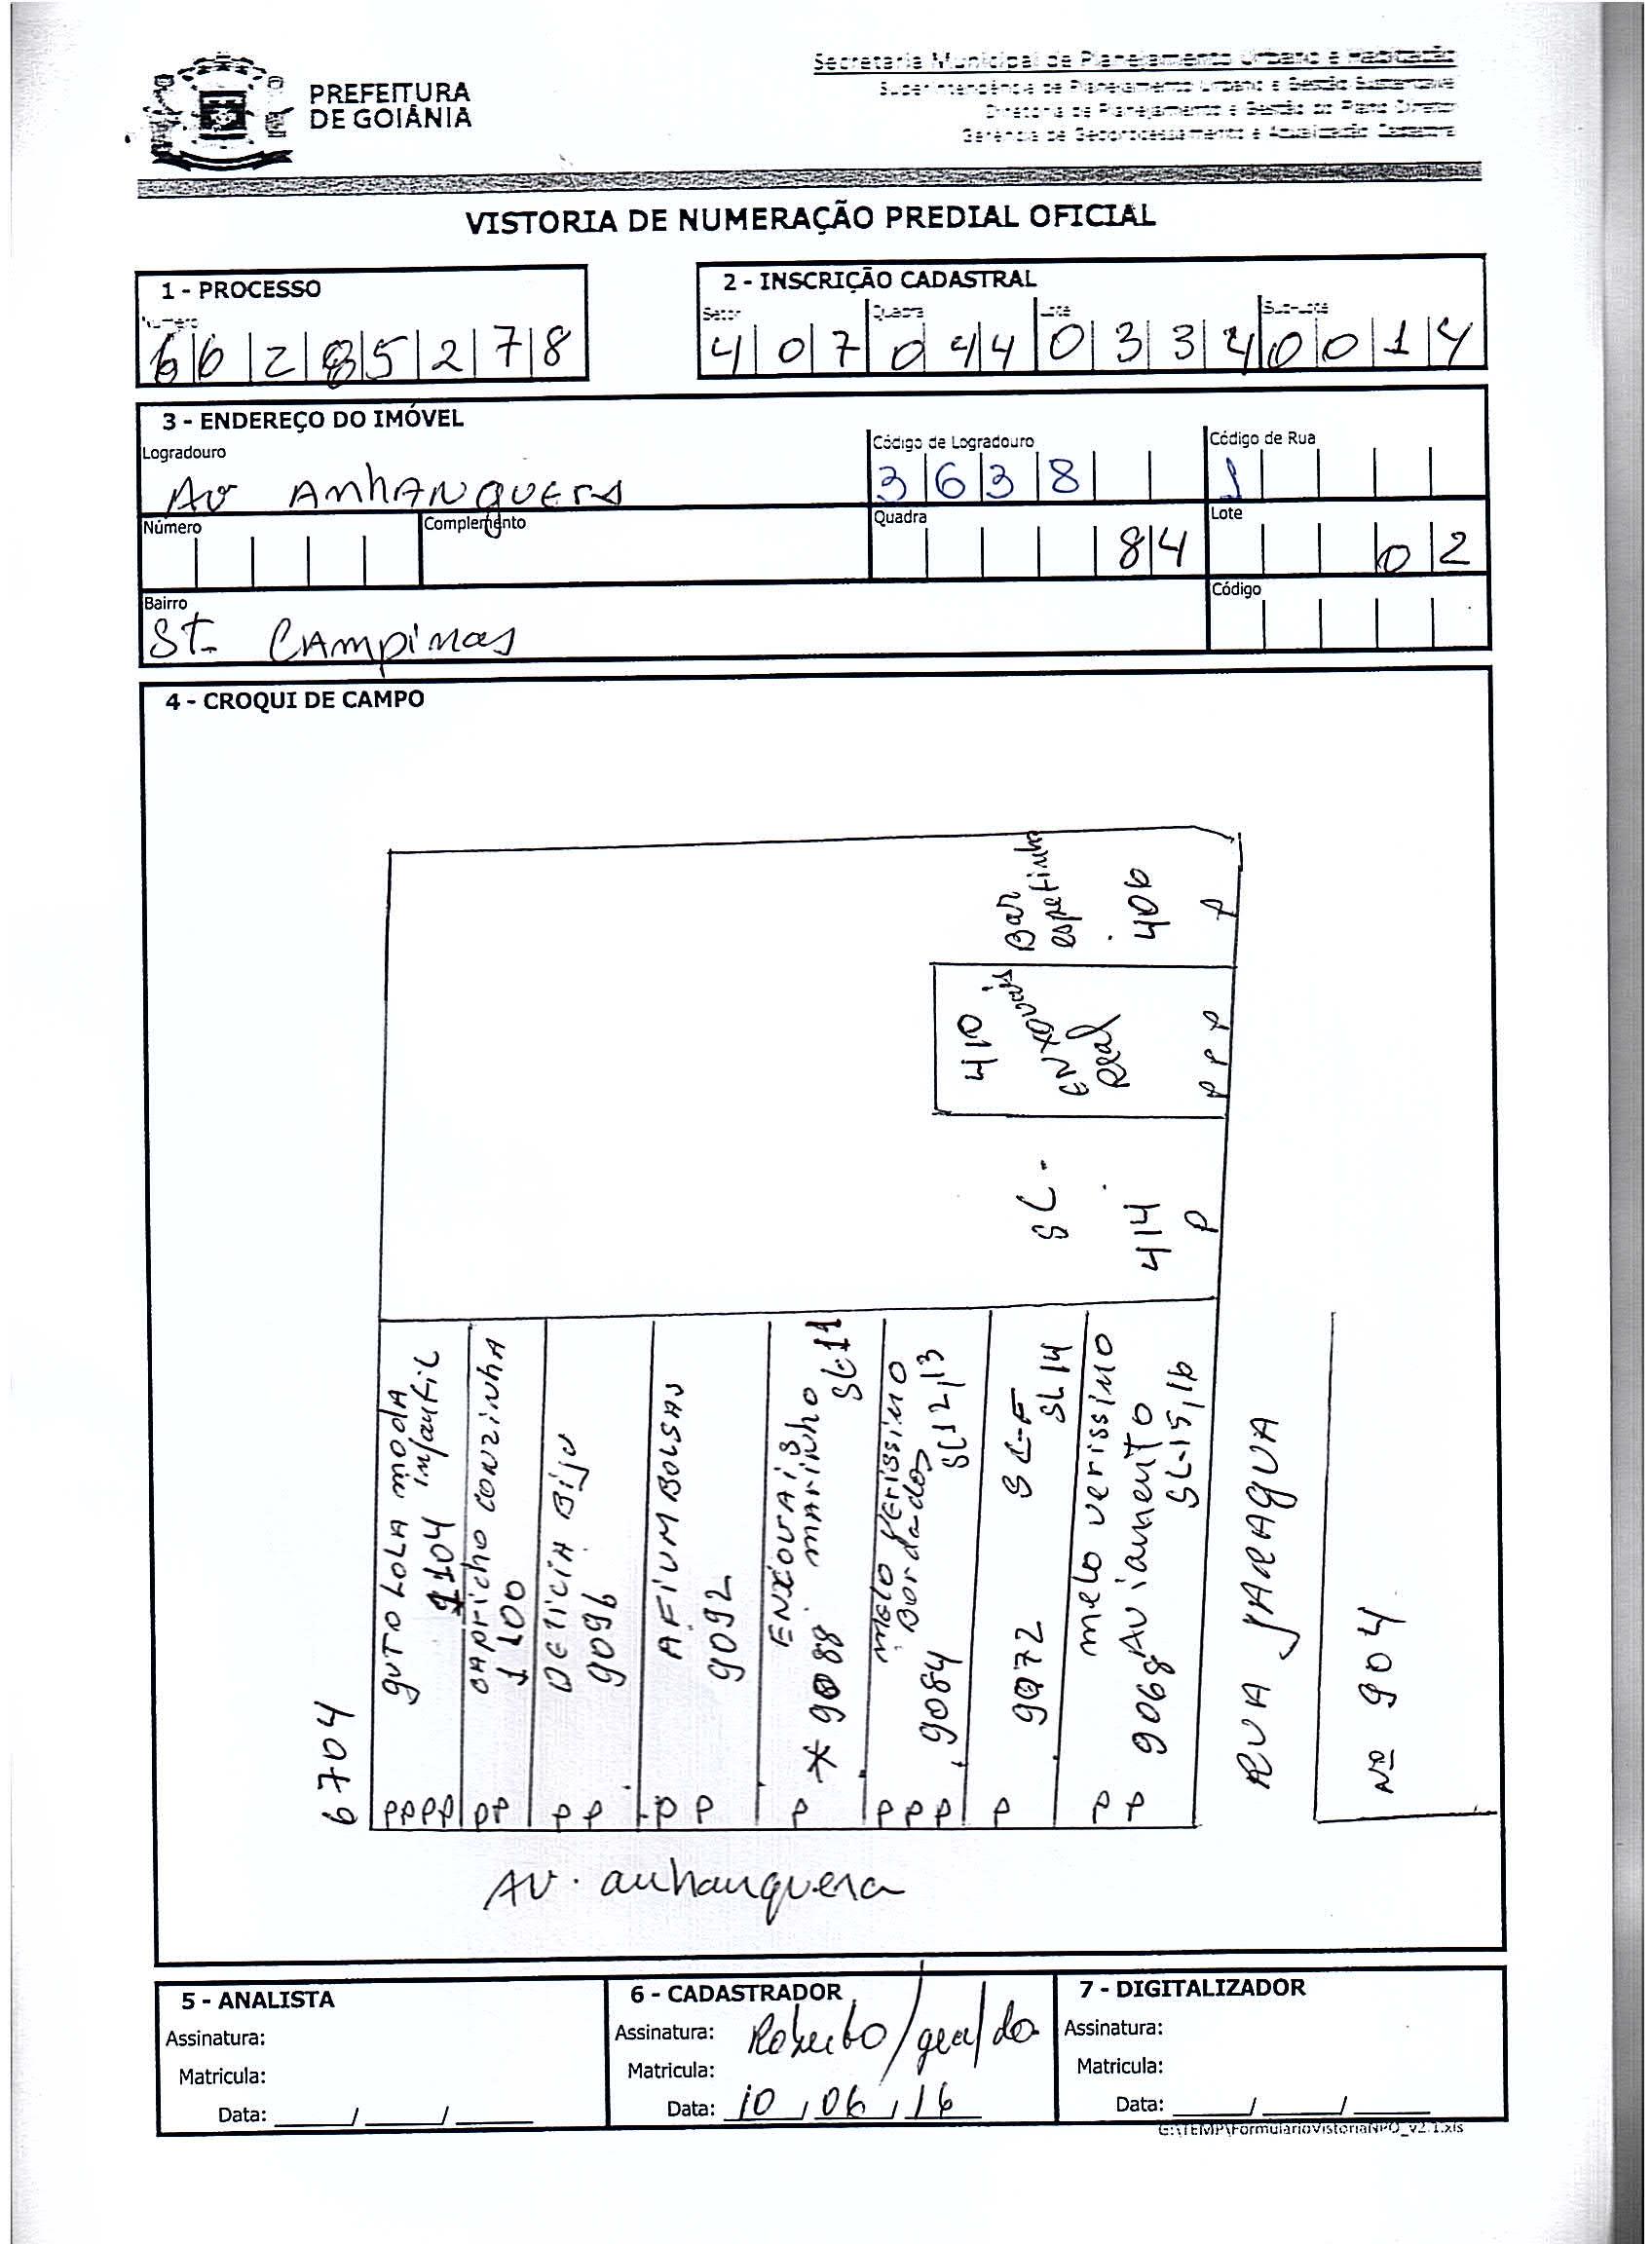 PREFEITURA
DE GOIÂNIA
Secretaria Municipal de Planejamento Urbano e Habitação
Superintendência de Planejamento Urbano e Gestão Sustentável
Diretoria de Planejamento e Gestão do Plano Diretor
Gerência de Geoprocessamento e Atualização Cadastral
VISTORIA DE NUMERAÇÃO PREDIAL OFICIAL
1 - PROCESSO
Número
66285278
2 - INSCRIÇÃO CADASTRAL
Setor Quadra Lote Sub-Lote
407 044 0334 0014
3 - ENDEREÇO DO IMÓVEL
Logradouro
AV ANHANGUERA
Código de Logradouro
3638
Código de Rua
1
Número
Complemento
Quadra
84
Lote
02
Bairro
St. CAMPINAS
Código
4 - CROQUI DE CAMPO
Bar
espetinho
406
P
410
ENXOVAIS
Real
P P P
SL -
414
P
6704
GUTO LOLA MODA
infantil
9104
PPPP
CAPRICHO CONZINHA
1100
PP
DELICIA Biju
9096
P P
AFIUM BOLSAS
9092
P P
ENXOVAIS
MARINHO
SL:11
* 9088
P
MELO VERISSIMO
Bordados
SL12,13
9084
P P P
SL-F
SL14
9072
P
melo verissimo
Aviamento
SL-15,16
9068
P P
RUA JARAGUA
Nº 904
AV. anhanguera
5 - ANALISTA
Assinatura:
Matricula:
Data: ____/____/____
6 - CADASTRADOR
Assinatura: Roberto/geraldo
Matricula:
Data: 10/06/16
7 - DIGITALIZADOR
Assinatura:
Matricula:
Data: ____/____/____
G:\TEMP\FormularioVistoriaNPO_v2.1.xls